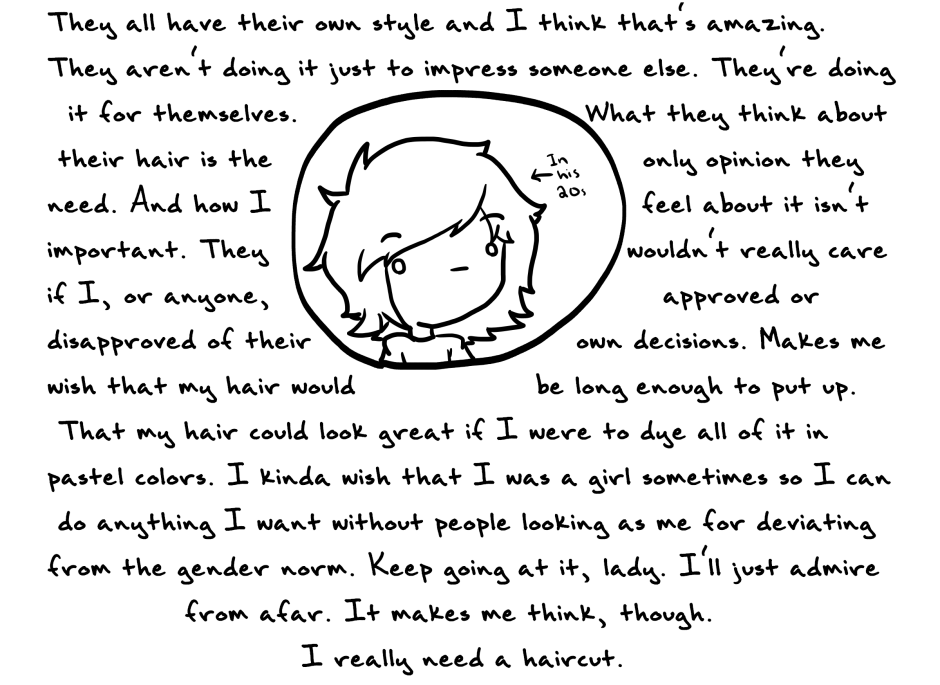 They all have their own style and I think that's amazing.
They aren't doing it just to impress someone else. They're doing
it for themselves. What they think about
their hair is the only opinion they
need. And how I feel about it isn't
important. They wouldn't really care
if I, or anyone, approved or
disapproved of their own decisions. Makes me
wish that my hair would be long enough to put up.
That my hair could look great if I were to dye all of it in
pastel colors. I kinda wish that I was a girl sometimes so I can
do anything I want without people looking as me for deviating
from the gender norm. Keep going at it, lady. I'll just admire
from afar. It makes me think, though.
I really need a haircut.
In
his
20s